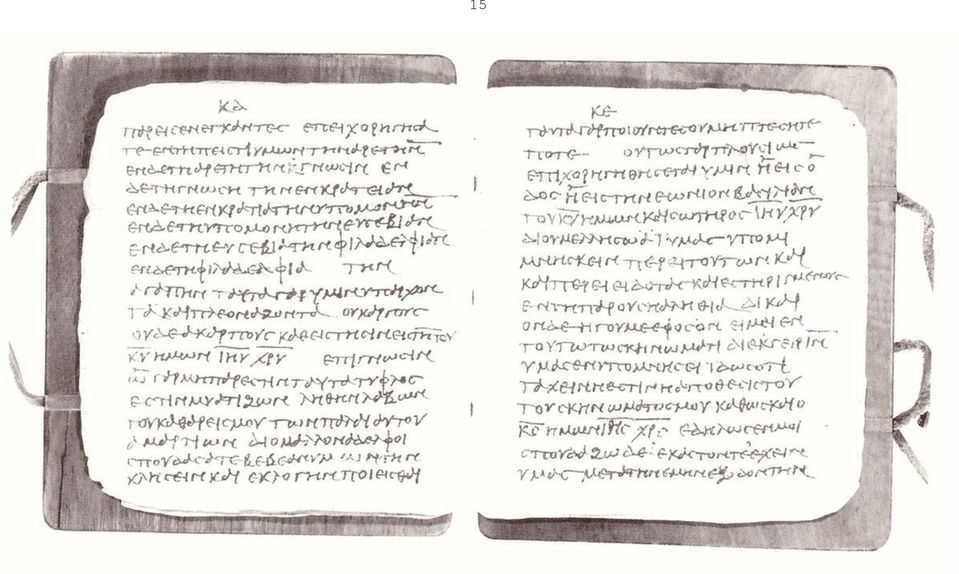 15
ΚΔ
ΠΑΡΕΙϹΕΝΕΓΚΑΝΤΕϹ ΕΠΕΙΧΟΡΗΓΗϹΑ
ΤΕ ΕΝ ΤΗ ΠΕΙϹΤΙ ΥΜΩΝ ΤΗΝ ΑΡΕΤΗΝ
ΕΝ ΔΕ ΤΗ ΑΡΕΤΗ ΤΗΝ ΓΝΩϹΙΝ ΕΝ
ΔΕ ΤΗ ΓΝΩϹΗ ΤΗΝ ΕΝΚΡΑΤΕΙΑΝ
ΕΝ ΔΕ ΤΗ ΕΝΚΡΑΤΙΑ ΤΗΝ ΥΠΟΜΟΝΗΝ
ΕΝ ΔΕ ΤΗ ΥΠΟΜΟΝΗ ΤΗΝ ΕΥϹΕΒΙΑΝ
ΕΝ ΔΕ ΤΗ ΕΥϹΕΒΙΑ ΤΗΝ ΦΙΛΑΔΕΛΦΙΑΝ
ΕΝ ΔΕ ΤΗ ΦΙΛΑΔΕΛΦΙΑ ΤΗΝ
ΑΓΑΠΗΝ ΤΑΥΤΑ ΓΑΡ ΥΜΙΝ ΥΠΑΡΧΟΝ
ΤΑ ΚΑΙ ΠΛΕΟΝΑΖΟΝΤΑ ΟΥΚ ΑΡΓΟΥϹ
ΟΥΔΕ ΑΚΑΡΠΟΥϹ ΚΑΘΕΙϹΤΗϹΙΝ ΕΙϹ ΤΗΝ ΤΟΥ
ΚΥ ΗΜΩΝ ΙΗΥ ΧΡΥ ΕΠΙΓΝΩϹΙΝ
Ω ΓΑΡ ΜΗ ΠΑΡΕϹΤΗΝ ΤΑΥΤΑ ΤΥΦΛΟϹ
ΕϹΤΗΝ ΜΥΑΤΙΖΩΝ ΛΗΘΗΝ ΛΑΒΩΝ
ΤΟΥ ΚΑΘΑΡΕΙϹΜΟΥ ΤΩΝ ΠΑΛΑΙ ΑΥΤΟΥ
ΑΜΑΡΤΙΩΝ ΔΙΟ ΜΑΛΛΟΝ ΑΔΕΛΦΟΙ
ϹΠΟΥΔΑϹΑΤΕ ΒΕΒΕΑΝ ΥΜΩΝ ΤΗΝ
ΚΛΗϹΕΙΝ ΚΑΙ ΕΚΛΟΓΗΝ ΠΟΙΕΙϹΘΑΙ
ΚΕ
ΤΑΥΤΑ ΓΑΡ ΠΟΙΟΥΝΤΕϹ ΟΥ ΜΗ ΠΤΕϹΗΤΕ
ΠΟΤΕ ΟΥΤΩϹ ΓΑΡ ΠΛΟΥϹΙΩϹ
ΕΠΙΧΟΡΗΓΗΘΗϹΕΤΑΙ ΥΜΙΝ Η ΕΙϹΟ
ΔΟϹ Η ΕΙϹ ΤΗΝ ΕΩΝΙΟΝ ΒΑϹΙΛΙΑΝ
ΤΟΥ ΚΥ ΗΜΩΝ ΚΑΙ ϹΩΤΗΡΟϹ ΙΗΥ ΧΡΥ
ΔΙΟ ΜΕΛΛΗϹΩ ΑΙ ΥΜΑϹ ΥΠΟΜΙ
ΜΝΗϹΚΕΙΝ ΠΕΡΕΙ ΤΟΥΤΩΝ ΚΑΙ
ΚΑΙΠΕΡ ΕΙΕΙΔΟΤΑϹ ΚΑΙ ΕϹΤΗΡΙΓΜΕΝΟΥϹ
ΕΝ ΤΗ ΠΑΡΟΥϹΗ ΑΛΗΘΙΑ ΔΙΚΑΙ
ΟΝ ΔΕ ΗΓΟΥΜΕ ΕΦ ΟϹΟΝ ΕΙΜΕΙ ΕΝ
ΤΟΥΤΩ ΤΩ ϹΚΗΝΩΜΑΤΙ ΔΙΕΚΓΕΙΡΙΝ
ΥΜΑϹ ΕΝ ΥΠΟΜΝΗϹΕΙ ΙΔΩϹ ΟΤΙ
ΤΑΧΕΙΝΗ ΕϹΤΙΝ Η ΑΠΟΘΕϹΙϹ ΤΟΥ
ΤΟΥ ϹΚΗΝΩΜΑΤΟϹ ΜΟΥ ΚΑΘΩϹ ΚΑΙ Ο
ΚϹ ΗΜΩΝ ΙΗϹ ΧΡϹ ΕΔΗΛΩϹΕΝ ΜΟΙ
ϹΠΟΥΔΑΖΩ ΔΕ ΕΚΑϹΤΟΤΕ ΕΧΕΙΝ
ΥΜΑϹ ΜΕΤΑ ΤΗΝ ΕΜΗΝ ΕΞΟΔΟΝ ΤΗΝ